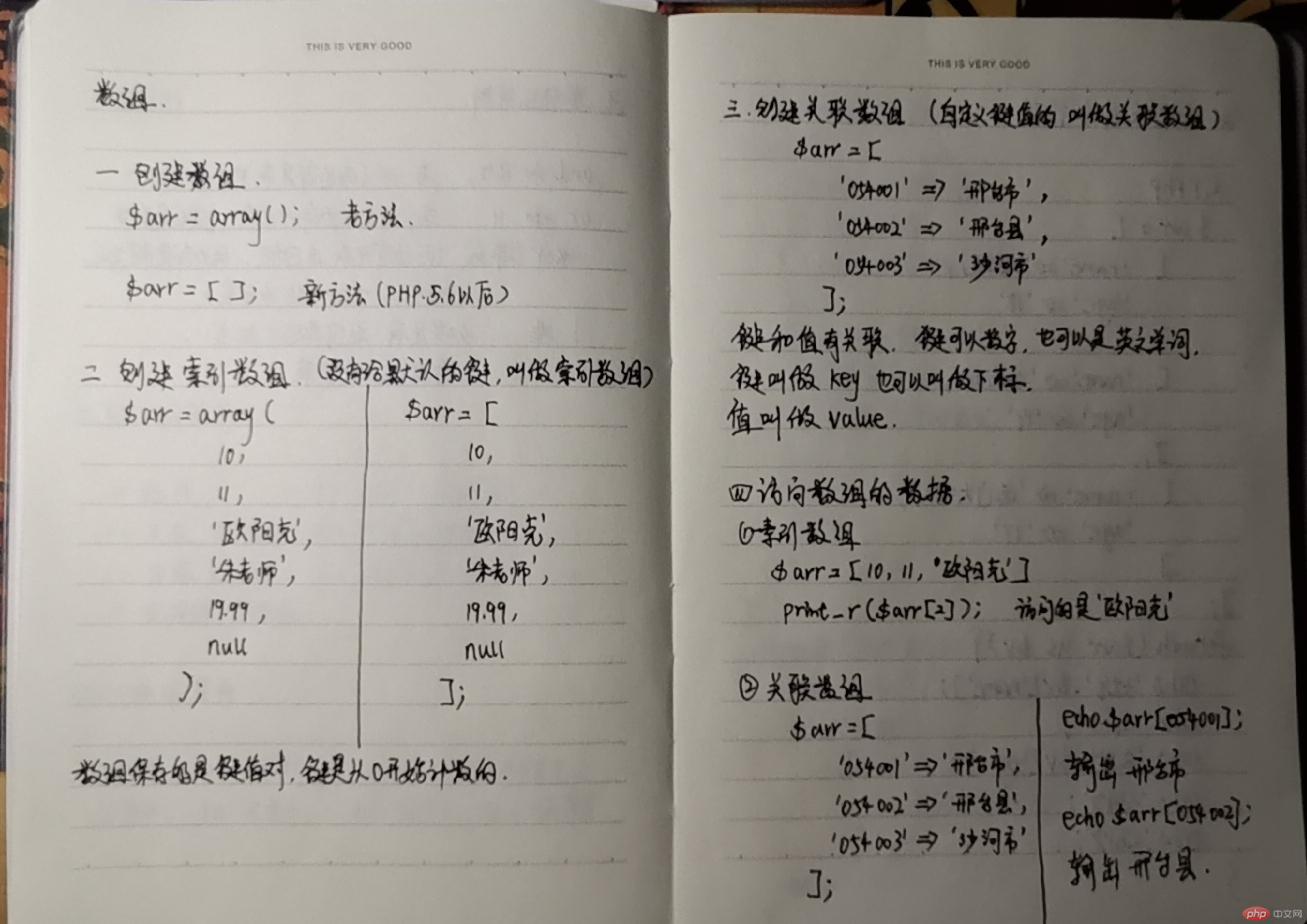 THIS IS VERY GOOD
数组.
一 创建数组.
$arr = array(); 老方法.
$arr = [ ]; 新方法(PHP.5.6以后)
二 创建索引数组.(没有给默认的键,叫做索引数组)
$arr = array(
10,
11,
'欧阳克',
'朱老师',
19.99,
null
);
$arr = [
10,
11,
'欧阳克',
'朱老师',
19.99,
null
];
数组保存的是键值对,键是从0开始计数的.
THIS IS VERY GOOD
三.创建关联数组 (自定义键值的 叫做关联数组)
$arr = [
'054001' => '邢台市',
'054002' => '邢台县',
'054003' => '沙河市'
];
键和值有关联. 键可以数字,也可以是英文单词.
键叫做 key 也可以叫做下标.
值叫做 value.
四 访问数组的数据.
①索引数组
$arr = [10, 11, '欧阳克']
print_r($arr[2]); 访问的是'欧阳克'
②关联数组
$arr = [
'054001' => '邢台市',
'054002' => '邢台县',
'054003' => '沙河市'
];
echo $arr[054001];
输出 邢台市
echo $arr[054002];
输出 邢台县.
php 中文网